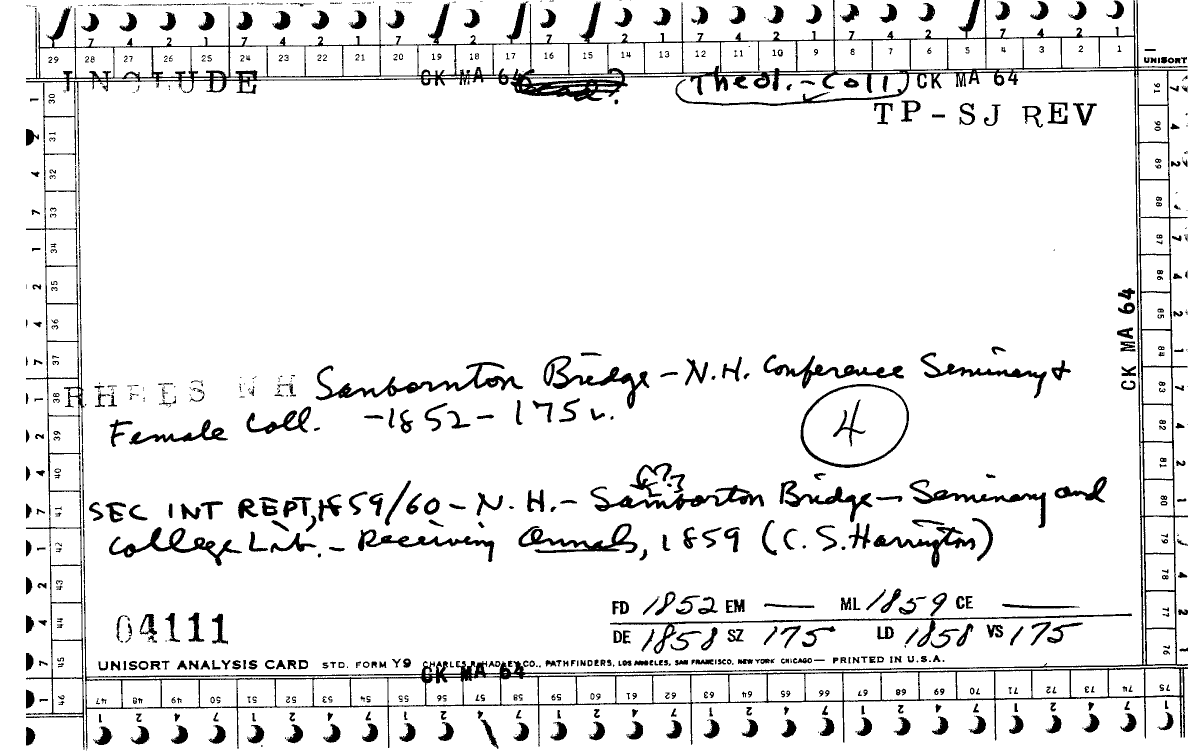 7 4 2 1 7 4 2 1 7 4 2 1 7 4 2 1 7 4 2 1 7 4 2 1
29 28 27 26 25 24 23 22 21 20 19 18 17 16 15 14 13 12 11 10 9 8 7 6 5 4 3 2 1
UNISORT
INCLUDE CK MA 64 Theol.-Coll. CK MA 64
TP-SJ REV
CK MA 64
RHEES NH Sanbornton Bridge - N.H. Conference Seminary &
Female Coll. -1852- 175 v.
4
SEC INT REPT, 1859/60 - N. H. - Sanborton Bridge - Seminary and
College Lib. - Receiving Annals, 1859 (C. S. Harrington)
FD 1852 EM — ML 1859 CE —
04111
DE 1858 SZ 175 LD 1858 VS 175
UNISORT ANALYSIS CARD STD. FORM Y9 CHARLES R. HADLEY CO., PATHFINDERS, LOS ANGELES, SAN FRANCISCO, NEW YORK CHICAGO — PRINTED IN U.S.A.
CK MA 64
47 48 49 50 51 52 53 54 55 56 57 58 59 60 61 62 63 64 65 66 67 68 69 70 71 72 73 74 75
30 31 32 33 34 35 36 37 38 39 40 41 42 43 44 45 46
91 90 89 88 87 86 85 84 83 82 81 80 79 78 77 76